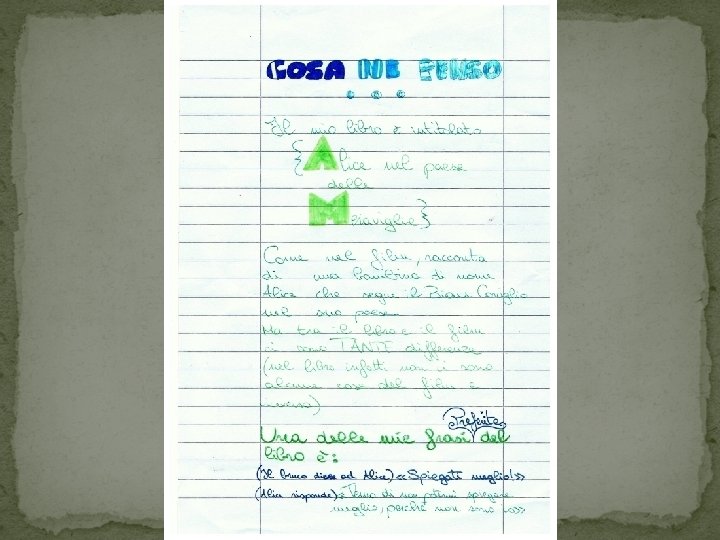 COSA NE PENSO
...
Il mio libro è intitolato
{Alice nel paese
delle
Meraviglie}
Come nel film, racconta
di una bambina di nome
Alice che segue il Bianco Coniglio
nel suo paese.
Ma tra il libro e il film
ci sono TANTE differenze
(nel libro infatti non ci sono
alcune cose del film e
inversi)
Preferite
Una delle mie frasi del
libro è:
(Il bruco dice ad Alice) «Spiegati meglio!»
(Alice risponde) «Temo di non potermi spiegare
meglio, perché non sono io»